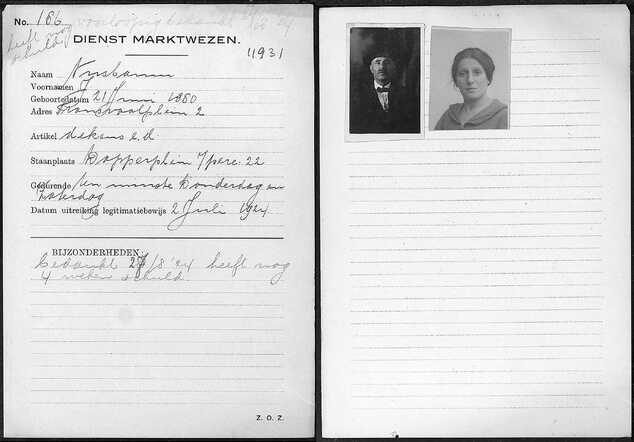 No. 186 voorloopig bedankt 27/8 24
heeft nog
schuld
DIENST MARKTWEZEN.
11931
Naam Nusbaum
Voornamen J
Geboortedatum 21 Juni 1880
Adres Transvaalplein 2
Artikel dekens e.d.
Staanplaats Dapperplein 7 perc. 22
Gedurende ten minste Donderdag en
Zaterdag
Datum uitreiking legitimatiebewijs 2 Juli 1924
BIJZONDERHEDEN:
Bedankt 27/8 '24 heeft nog
4 weken schuld.
Z. O. Z.